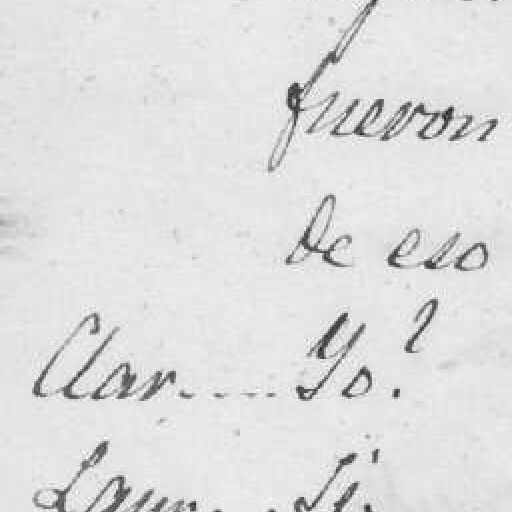 fueron
de eso
Clar..... Yo?
Laur.... Sí.